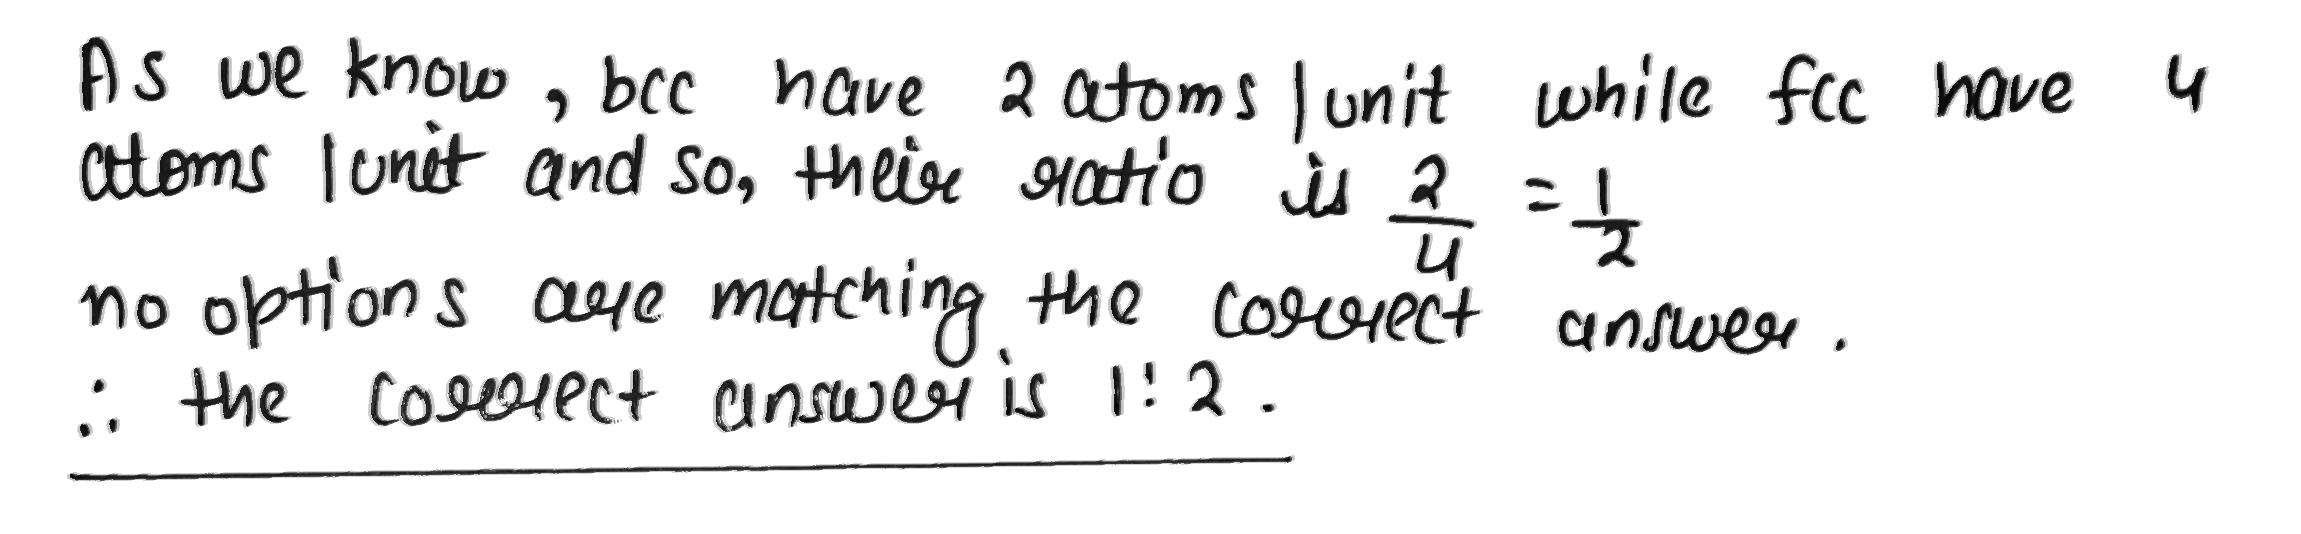 As we know, bcc have 2 atoms | unit while fcc have 4
atoms | unit and so, their ratio is 2/4 = 1/2
no options are matching the correct answer.
∴ the correct answer is 1:2.